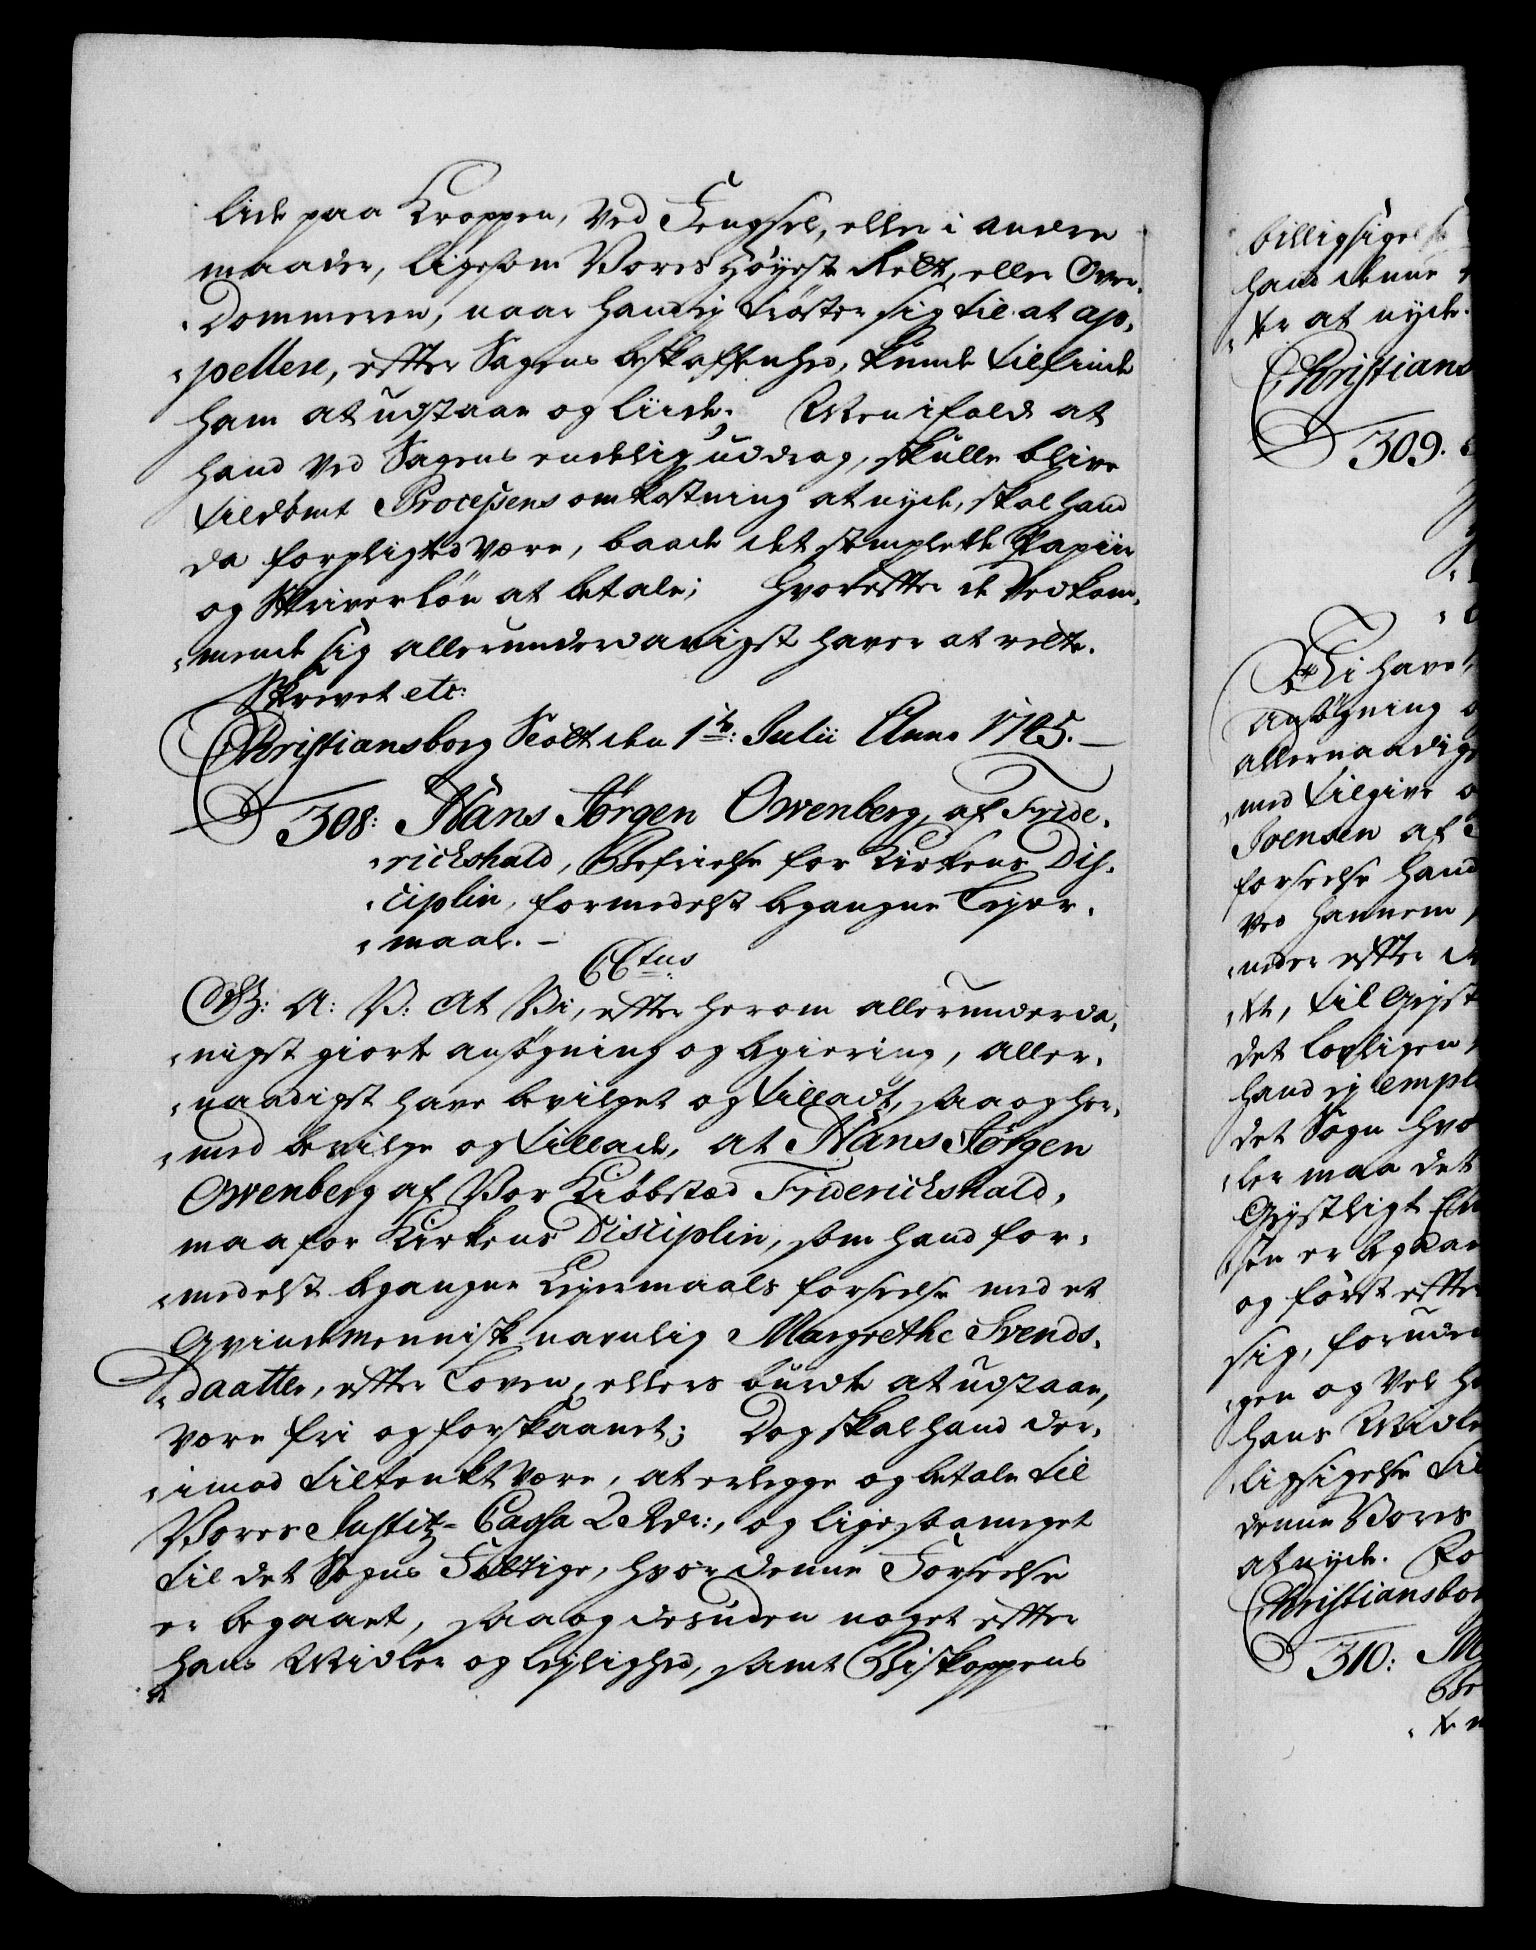 lide paa Kroppen, ved Fengsel, eller i andre
maader, ligesom Vores Høyeste Rett, eller Over-
Dommeren, naar hand ej trøster sig til at ap-
pellere, efter Sagens beskaffenhed, kunde tilfinde
ham at udstaae og liide; Men ifald at
hand ved Sagens endelig uddrag, skulle blive
tildømt Processens omkostning at nyde, skal hand
da forpligted være, baade det stemplede Papiir
og Skriverløn at betale; Hvorefter de Vedkom-
mende sig allerunderdanigst haver at rette.
Skrevet etc:
Christiansborg Slott den 1te: Julii Anno 1745.
308: Hans Jørgen Owenberg, af Fride-
richshald, Befrielse for Kirkens Dis-
ciplin, formedelst begangne Lejer-
maal.
C6tus
G: A: V: At Vi, efter herom allerunderda-
nigst giorte ansøgning og begiering, aller-
naadigst have bevilget og tilladt, saa og her-
med bevilge og tillade, at Hans Jørgen
Owenberg af Vor Kiøbstæd Friderichshald,
maa for Kirkens Disciplin, som hand for-
medelst begangne Lejermaals forseelse med et
Qvindemenniske navnlig Margrethe Svends-
daatter, efter Loven, ellers burde at udstaae,
være fri og forskaanet; Dog skal hand der-
imod tiltenkt være, at erlegge og betale til
Vores Justitz-Cassa 2 Rdr:, og ligesaameget
til det Sogns Fattige, hvor denne Forseelse
er begaaet, saa og desuden noget efter
hans Midler og lejlighed, samt Biskoppens
billigsigelse
hand denne
te at nyde.
Christians
309.
Vi have
ansøgning
allernaadigst
med tilgive
Svensen af
forseelse hand
ved hannem
meder efter
det lovligen
hand ej
det Sogn hvor
ler maa det
Gejstligt
sen er begaaet
og først efter
sig, foruden
gen og Vel
hans Midler
ligsigelse til
denne Vores
at nyde.
Christiansborg
310: